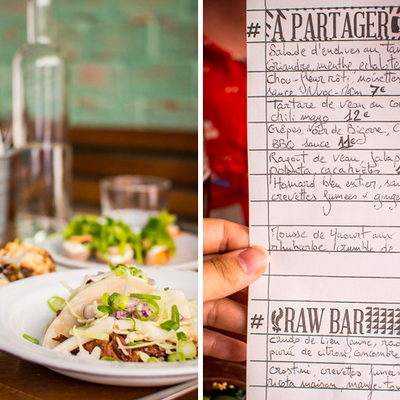 # À PARTAGER
Salade d'endives au
Coriandre, menthe,
Chou-fleur rôti, noisettes
sauce Nuoc-Mâm 7€
Tartare de veau au
chili mayo 12€
Crêpes, Noir de Bigorre,
BBQ sauce 11€
Ragoût de veau,
polenta, cacahuètes
Homard bleu entier,
crevettes fumées
Mousse de Yaourt aux
rhubarbe, crumble de
# RAW BAR
Crudo de lieu jaune,
purée de citron, concombre
Crostini, crevettes fumées
ricotta maison, mange-